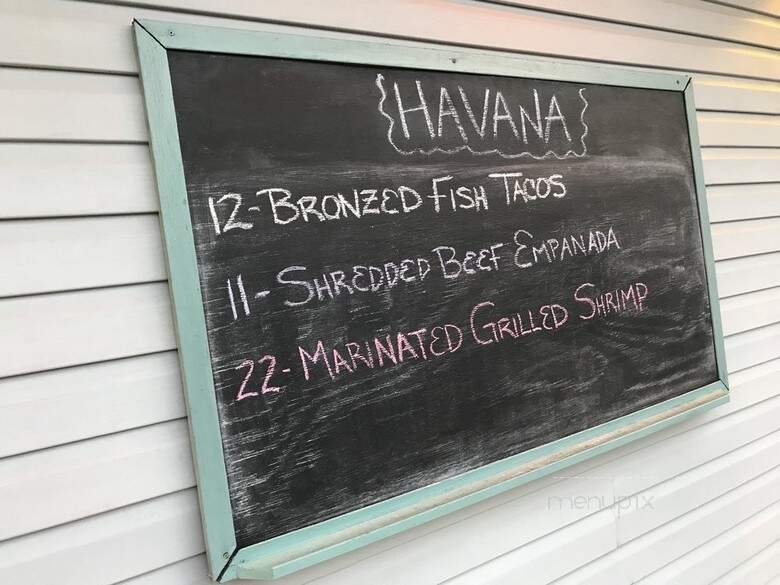 {HAVANA}
12-BRONZED FISH TACOS
11-SHREDDED BEEF EMPANADA
22-MARINATED GRILLED SHRIMP
menupix